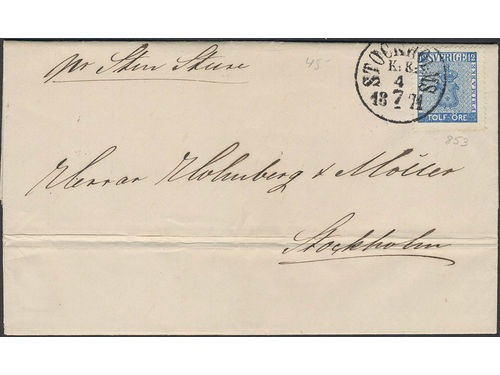 pr Sten Sture
45-
STOCKHOLM
K. K.
4
7
18 71
SVERIGE
12 12
TOLF ÖRE
853
Herrar Holmberg & Möller
Stockholm